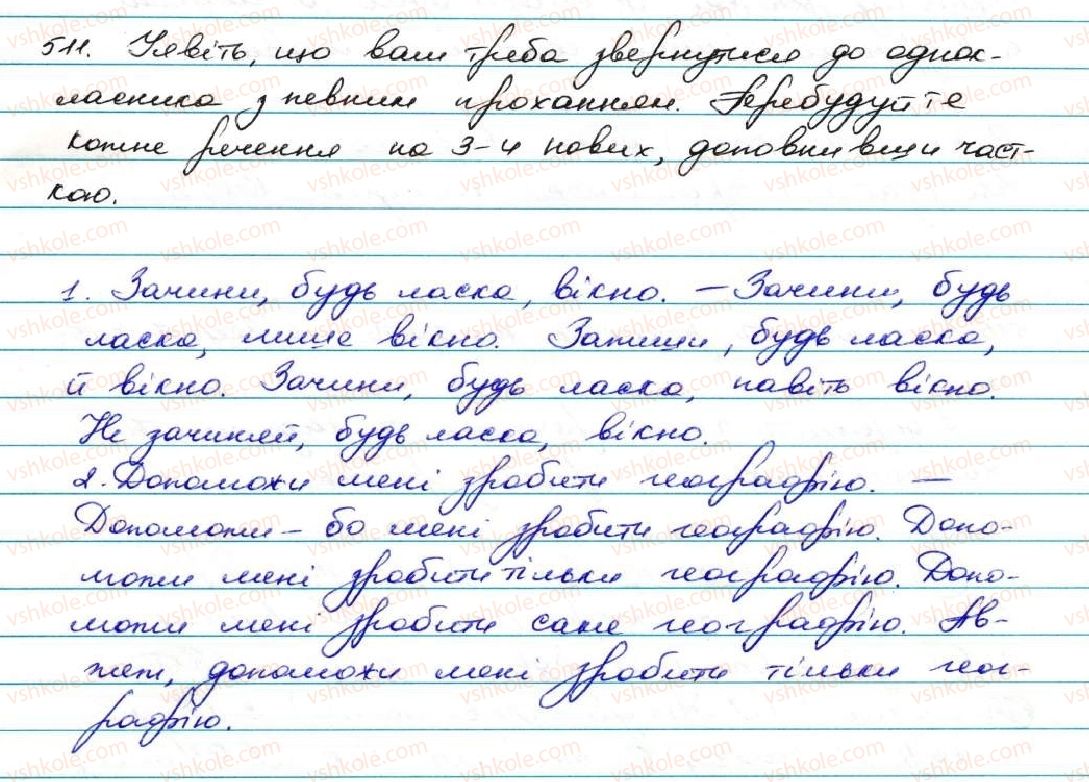 511. Уявіть, що вам треба звернутися до однок-
ласника з певним проханням. Перебудуйте
кожне речення на 3-4 нових, доповнивши част-
кою.
1. Зачини, будь ласка, вікно. – Зачини, будь
ласка, лише вікно. Запиши, будь ласка,
й вікно. Зачини, будь ласка, навіть вікно.
Не зачиняй, будь ласка, вікно.
2. Допоможи мені зробити географію. –
Допоможи-бо мені зробити географію. Допо-
можи мені зробити тільки географію. Допо-
можи мені зробити саме географію. Ав-
жеж, допоможи мені зробити тільки геог-
рафію.